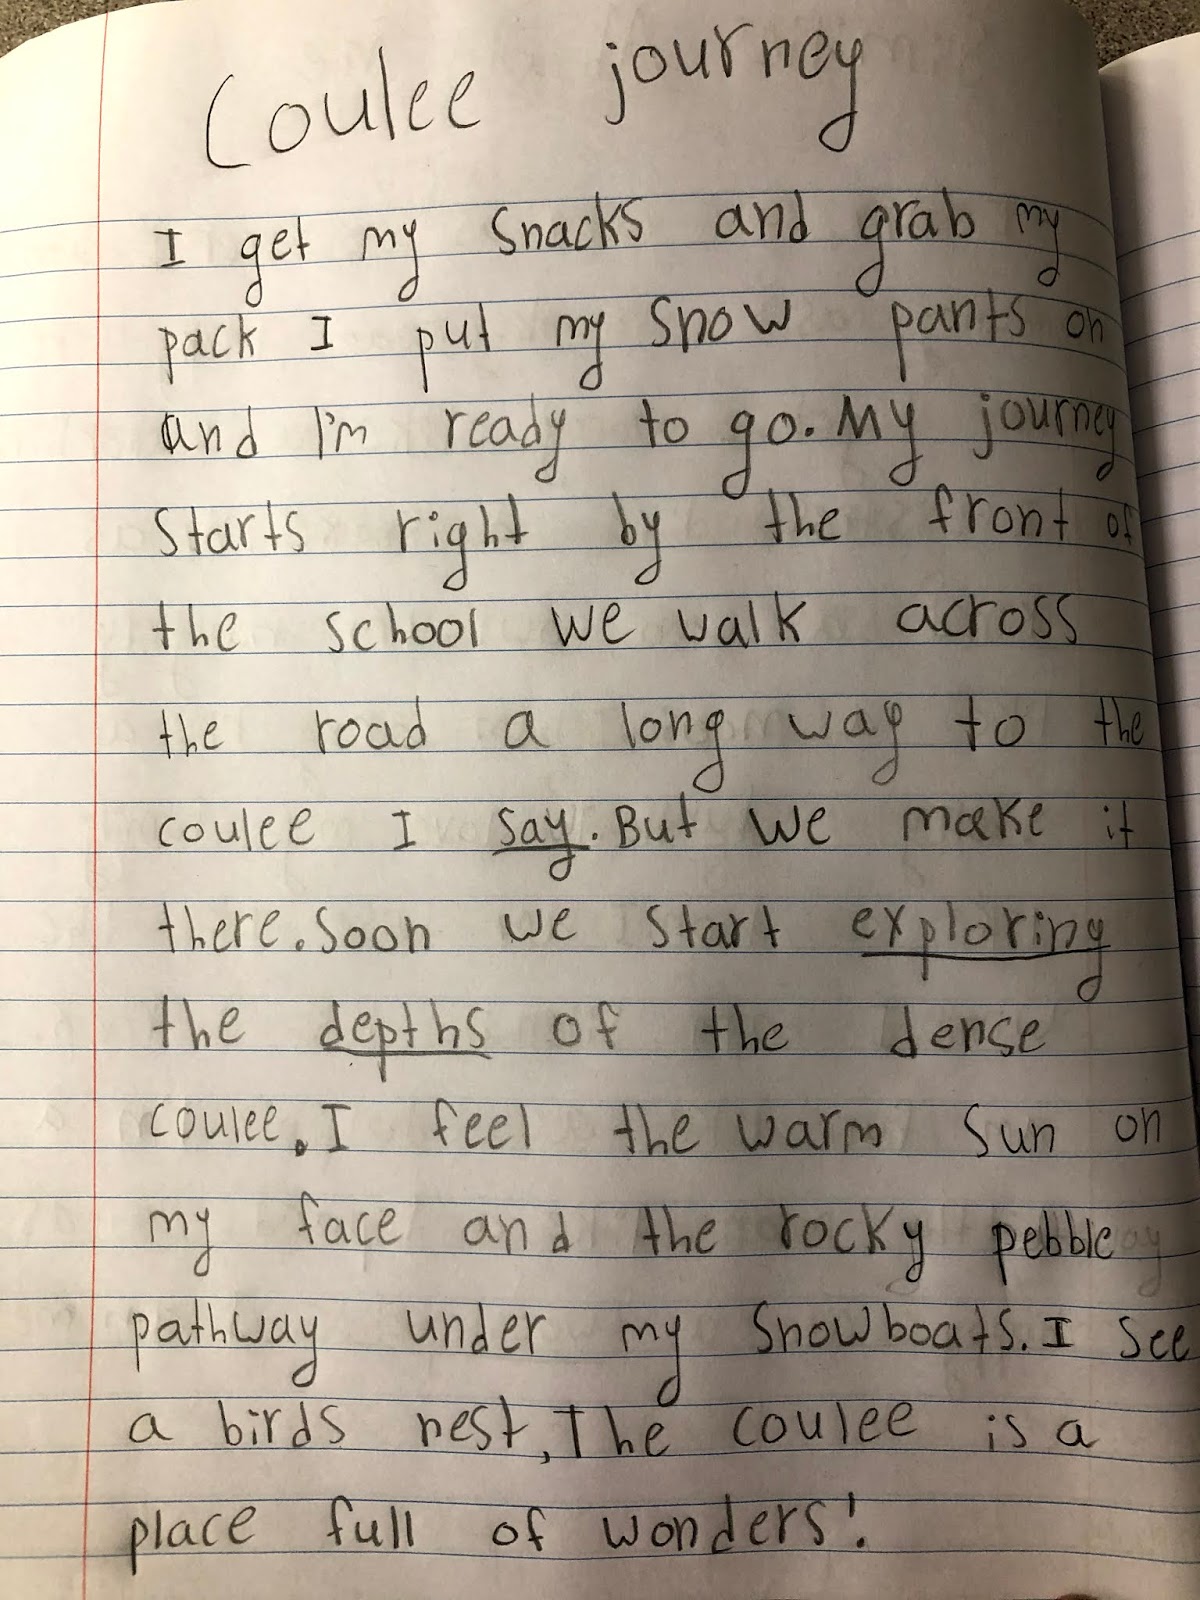 Coulee journey
I get my snacks and grab my
pack I put my snow pants on
and I'm ready to go. My journey
Starts right by the front of
the school we walk across
the road a long way to the
coulee I say. But we make it
there. Soon we start exploring
the depths of the dense
coulee. I feel the warm sun on
my face and the rocky pebble
pathway under my snowboats. I see
a birds nest, The coulee is a
place full of wonders!